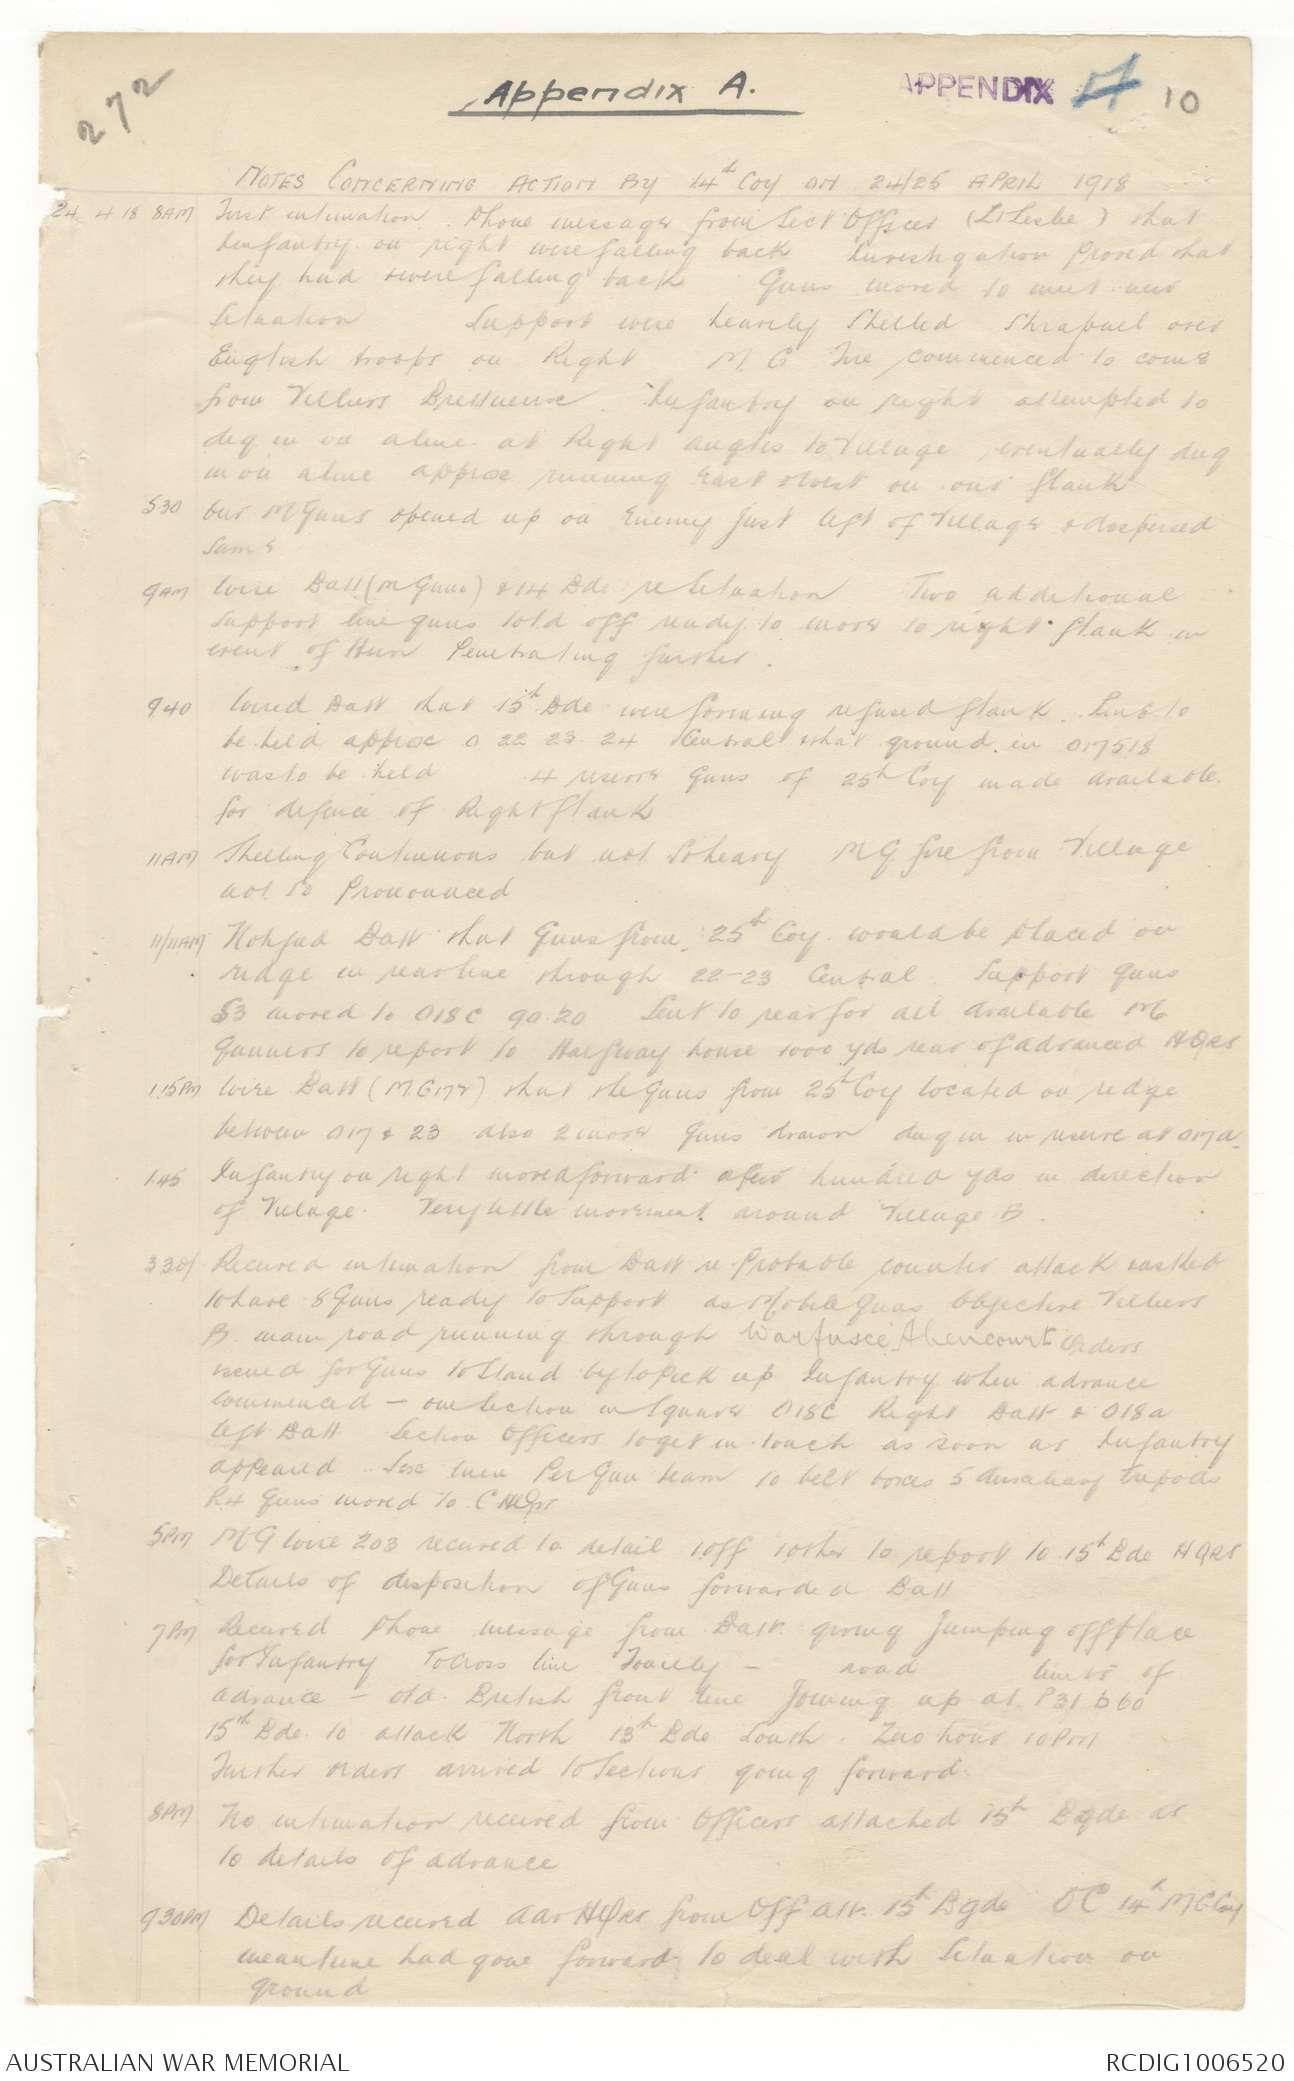 272
Appendix A.
APPENDIX A 10
NOTES CONCERNING ACTION BY 14th Coy ON 24/25 APRIL 1918
24.4.18 8AM First intimation. Phone message from Sect Officer (Lt Leslie) that
Infantry on right were falling back Investigation proved that
they had & were falling back Guns moved to meet new
Situation Support were heavily Shelled Shrapnel over
English troops on Right M G Fire commenced to come
from Villers Brettneux. Infantry on right attempted to
dig in on a line at Right angles to Village, eventually dug
in on a line approx running East & West on our flank
530 our M Guns opened up on Enemy just left of Village & dispersed
same
9AM Wire Batt (M Guns) & 14 Bde re Situation Two additional
Support line guns told off ready to move to right flank in
event of Hun Penetrating further.
940 Wired Batt that 15th Bde were forming refused flank. Line to
be held approx O 22 23 24 Central & that ground in O17 & 18
was to be held 4 reserve Guns of 25th Coy made available
for defence of Right flank
11AM Shelling Continuous but not so heavy MG fire from Village
not so Pronounced
11/11AM Notified Batt that Guns from 25th Coy would be placed on
ridge in rear line through 22-23 Central. Support Guns
S3 moved to O18C 90.20 Sent to rear for all available MG
Gunners to report to Halfway house 1000 yds rear of advanced HQRS
1.15PM Wire Batt (MG172) that the Guns from 25th Coy located on ridge
between O17 & 23 also 2 more Guns drawn dug in in reserve at O17a
1.45 Infantry on right moved forward a few hundred yds in direction
of Village. Very little movement around Village B.
330/ Received intimation from Batt re Probable counter attack & asked
to have 8 Guns ready to Support as Mobile Guns Objective Villers
B. main road running through Warfusee Abencourt Orders
issued for Guns to Stand by to Pick up Infantry when advance
commenced - one Section in Square O18C Right Batt & O18a
left Batt Section Officers to get in touch as soon as Infantry
appeared. Six men Per Gun team 10 belt boxes & Auxiliary tripods
R4 Guns moved to C HQrs
5PM MG Wire 203 received to detail 1 Off 1 other to report to 15th Bde HQRS
Details of disposition of Guns forwarded Batt
7PM Received Phone message from Batt. giving Jumping off Place
for Infantry To Cross line Fouilly - road limits of
advance - old British front line Joining up at P31 b 60
15th Bde to attack North 13th Bde South. Zero hour 10PM
Further orders arrived to Sections going forward
8PM No intimation received from Officer attached 15th Bgde as
to details of advance
930PM Details received Adv HQRS from Off att. 15th Bgde OC 14th MG Coy
meantime had gone forward to deal with Situation on
ground
AUSTRALIAN WAR MEMORIAL
RCDIG1006520